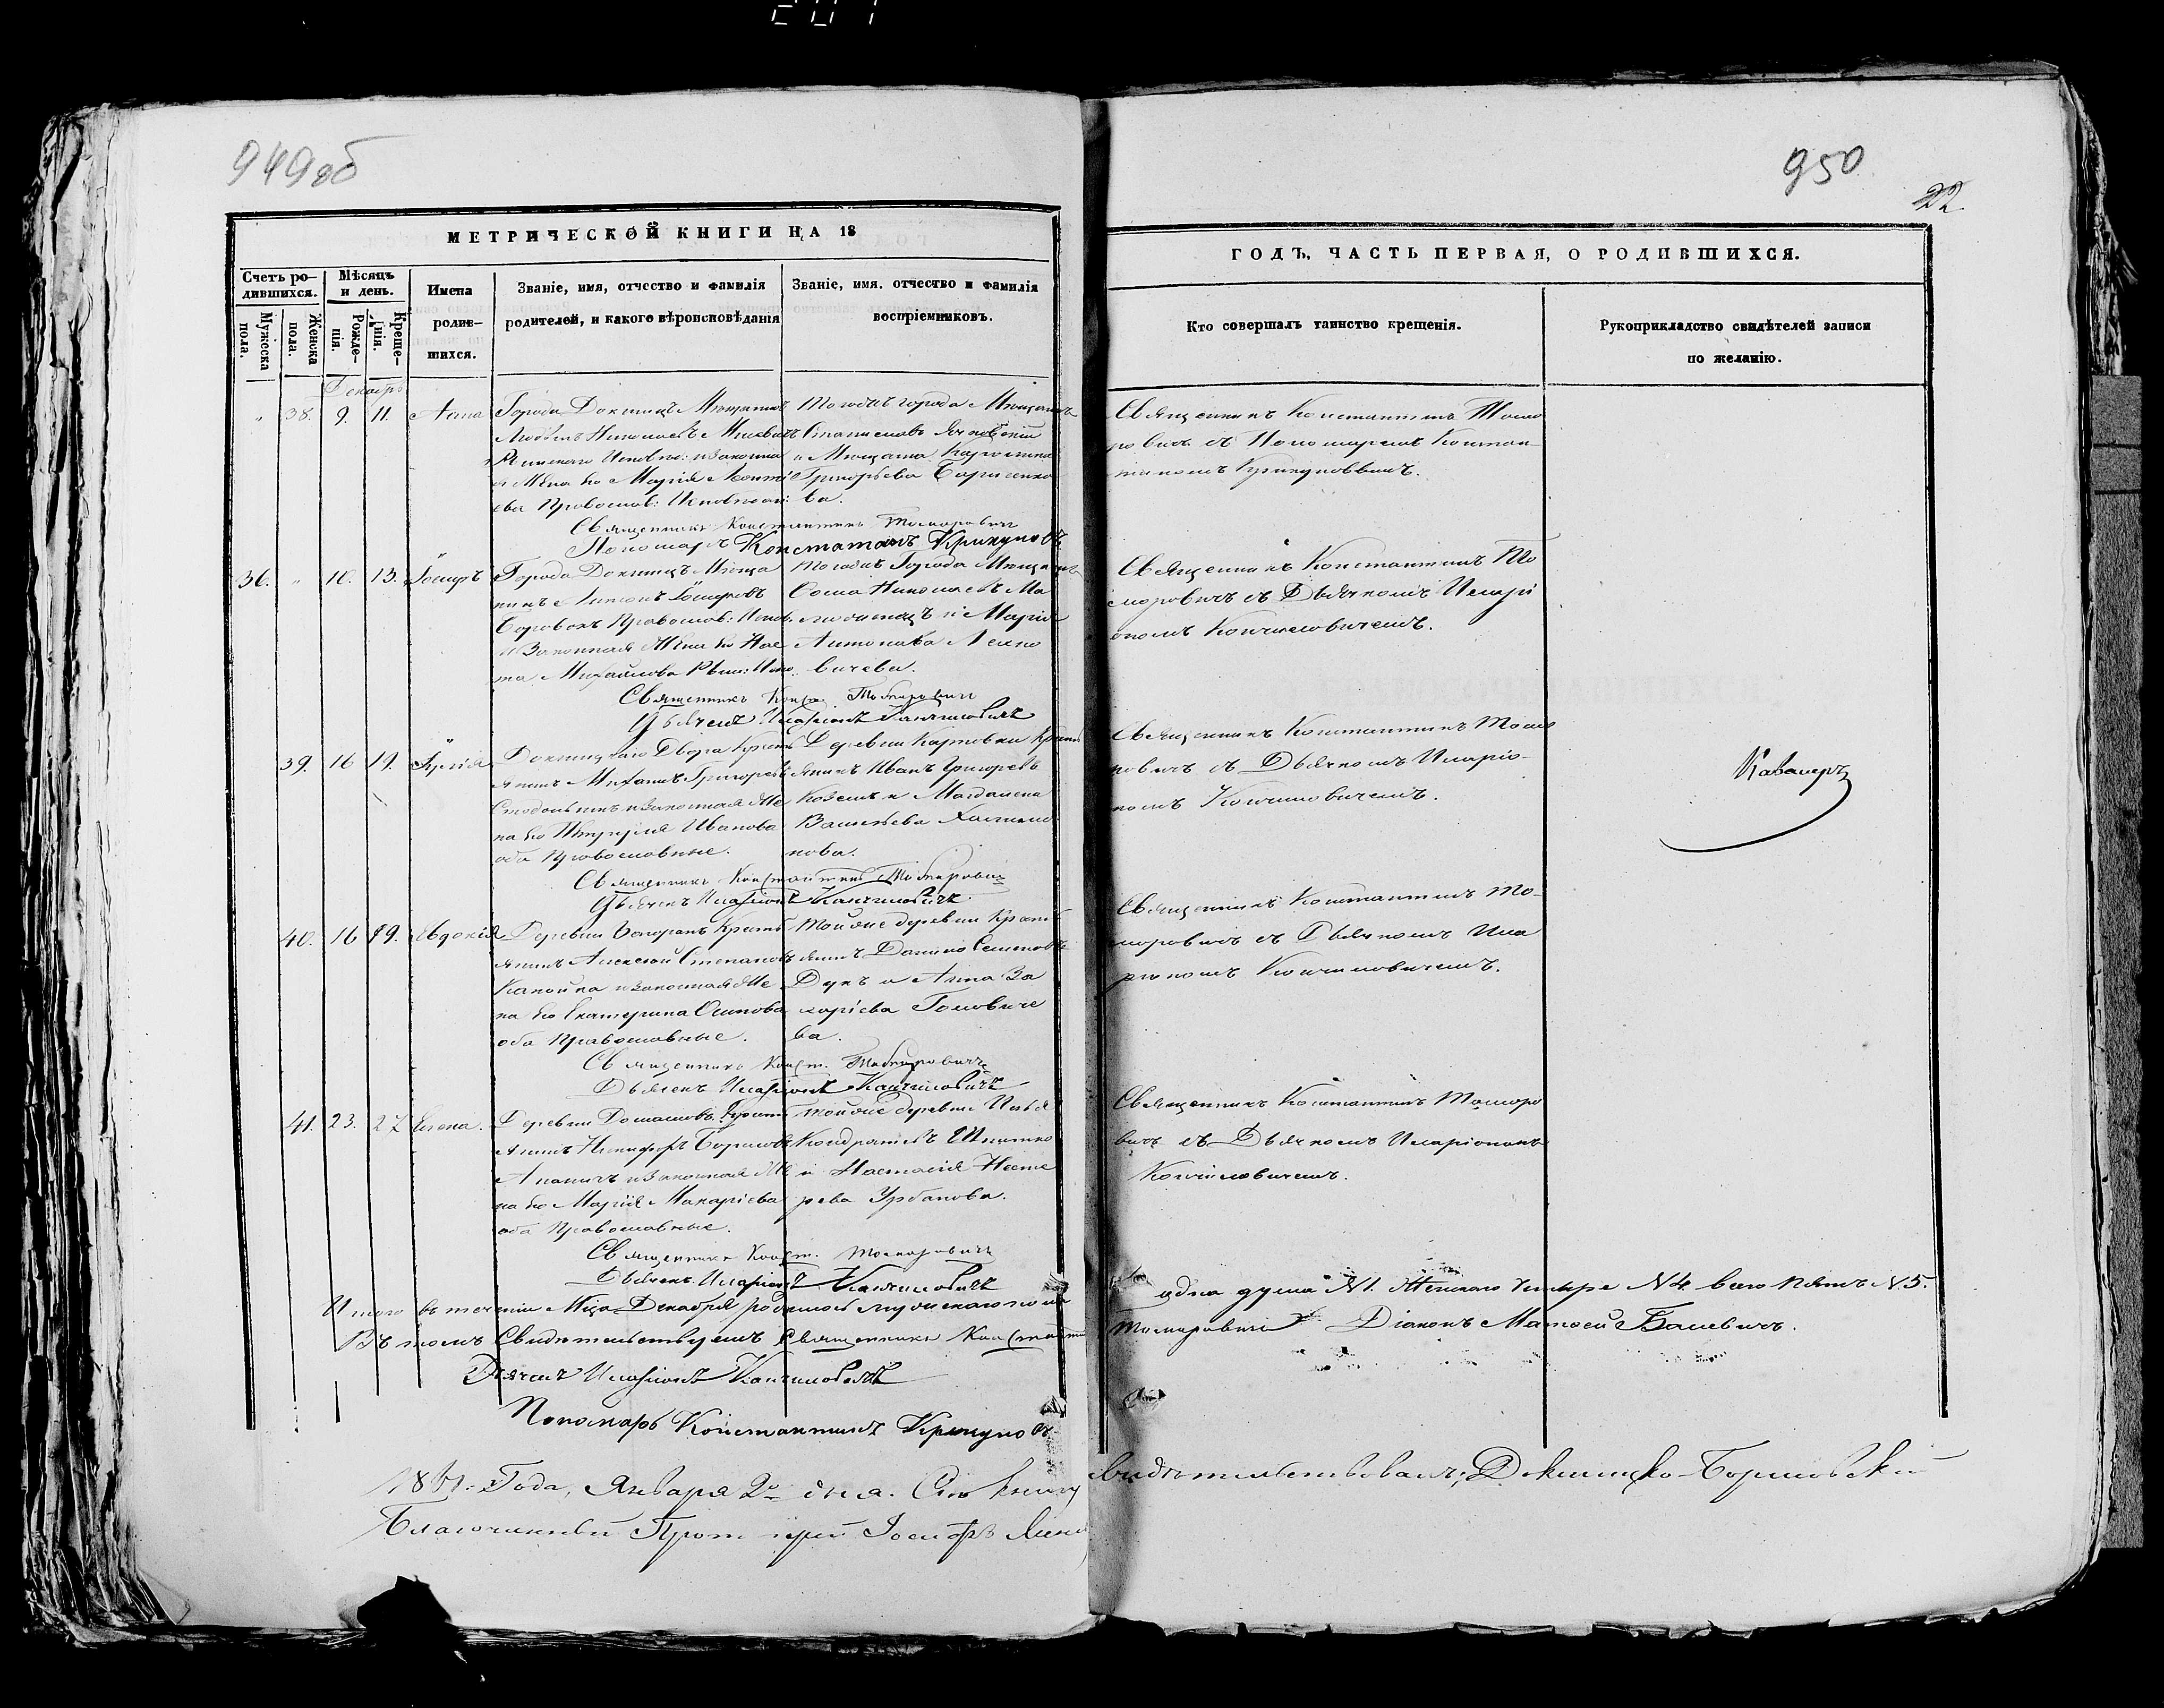 201
949об
950
22
МЕТРИЧЕСКОЙ КНИГИ НА 18
ГОДЪ, ЧАСТЬ ПЕРВАЯ, О РОДИВШИХСЯ.
Счетъ ро-
дившихся.
Мужеска пола.
Женска пола.
Мѣсяцъ
и день.
Рожде-
нія.
Креще-
нія.
Имена
родив-
шихся.
Званіе, имя, отчество и фамилія
родителей, и какого вѣроисповѣданія
Званіе, имя, отчество и фамилія
воспріемниковъ.
Кто совершалъ таинство крещенія.
Рукоприкладство свидѣтелей записи
по желанію.
Декабрь
„ 38. 9. 11. Анна
Города Докшицъ Мѣщанинъ
Николаевъ
Римскаго Исповѣд: и законна
я Жена его Марія Леонті
ева Православ: Исповѣдан:
Тогожъ города Мѣщанинъ
Станиславъ
и Мѣщанка
Григорьева Борисенко
ва.
Священникъ Константинъ Томоро
вичъ съ Пономаремъ Констан
тиномъ Крикуновымъ.
Священникъ Константинъ Томаровичъ
Пономарь Константинъ Крикуновъ
36. „ 10. 13. Іосифъ
Города Докшицъ Мѣща
нинъ Антонъ Іосифовъ
Боровокъ Православ: Испов:
и Законная Жена его
Михайлова Рим: Испо
Тогожъ Города Мѣщанинъ
Ѳома Николаевъ Ма
и Марія
Антонова
вичева.
Священникъ Константинъ То
моровичъ съ Дьячкомъ Иларі
ономъ Кончиловичемъ.
Священникъ Конст. Томаровичъ
Дьячекъ Иларіонъ Канчиловичъ
39. 16 19. Іулія
Докшицкаго Двора Кресть
янинъ Михаилъ Григорьевъ
и законная Же
на его Иванова
оба Православные.
Деревни Карповки Кресть
янинъ Иванъ Григорьевъ
Козелъ и Магдалена
Васильева
нова.
Священникъ Константинъ Томо
ровичъ съ Дьячкомъ Иларіо-
номъ Кончиловичемъ.
Кавалеръ
Священникъ Константинъ Томаровичъ
Дьячекъ Иларіонъ Канчиловичъ
40. 16 19. Евдокія
Деревни Кресть
янинъ Алексѣй Степановъ
Канойка и законная Же
на его Екатерина Осипова
оба Православные.
Тойже деревни Кресть
янинъ Данило Семеновъ
Дукъ и Анна За
харіева Головиче
ва.
Священникъ Константинъ То-
моровичъ съ Дьячкомъ Ила
ріономъ Кончиловичемъ.
Священникъ Конст. Томаровичъ
Дьячекъ Иларіонъ Канчиловичъ
41. 23. 27 Елена.
Деревни Кресть
янинъ Никифоръ Борисовъ
и законная Же
на его Марія Макаріева
оба Православные.
тойже деревни Илья
Кондратьевъ
и Настасія Несте
рова Урбанова.
Священникъ Константинъ Томоро
вичъ съ Дьячкомъ Иларіономъ
Кончиловичемъ.
Священникъ Конст. Томаровичъ
Дьячекъ Иларіонъ Канчиловичъ
Итого въ теченіи Мѣсца Декабря родилось мужескаго пола одна душа N 1. Женскаго четыре N 4. всего пять N. 5.
Въ томъ Свидѣтельствуемъ Священникъ Константинъ Томаровичъ Діаконъ Матѳей Балевичъ.
Дьячекъ Иларіонъ Канчиловичъ
Пономарь Константинъ Крикуновъ
Года, Января 2го дня. Сію книгу свидѣтельствовалъ, Докшицко-Борисовскій
Благочинный Протоіерей Іосифъ